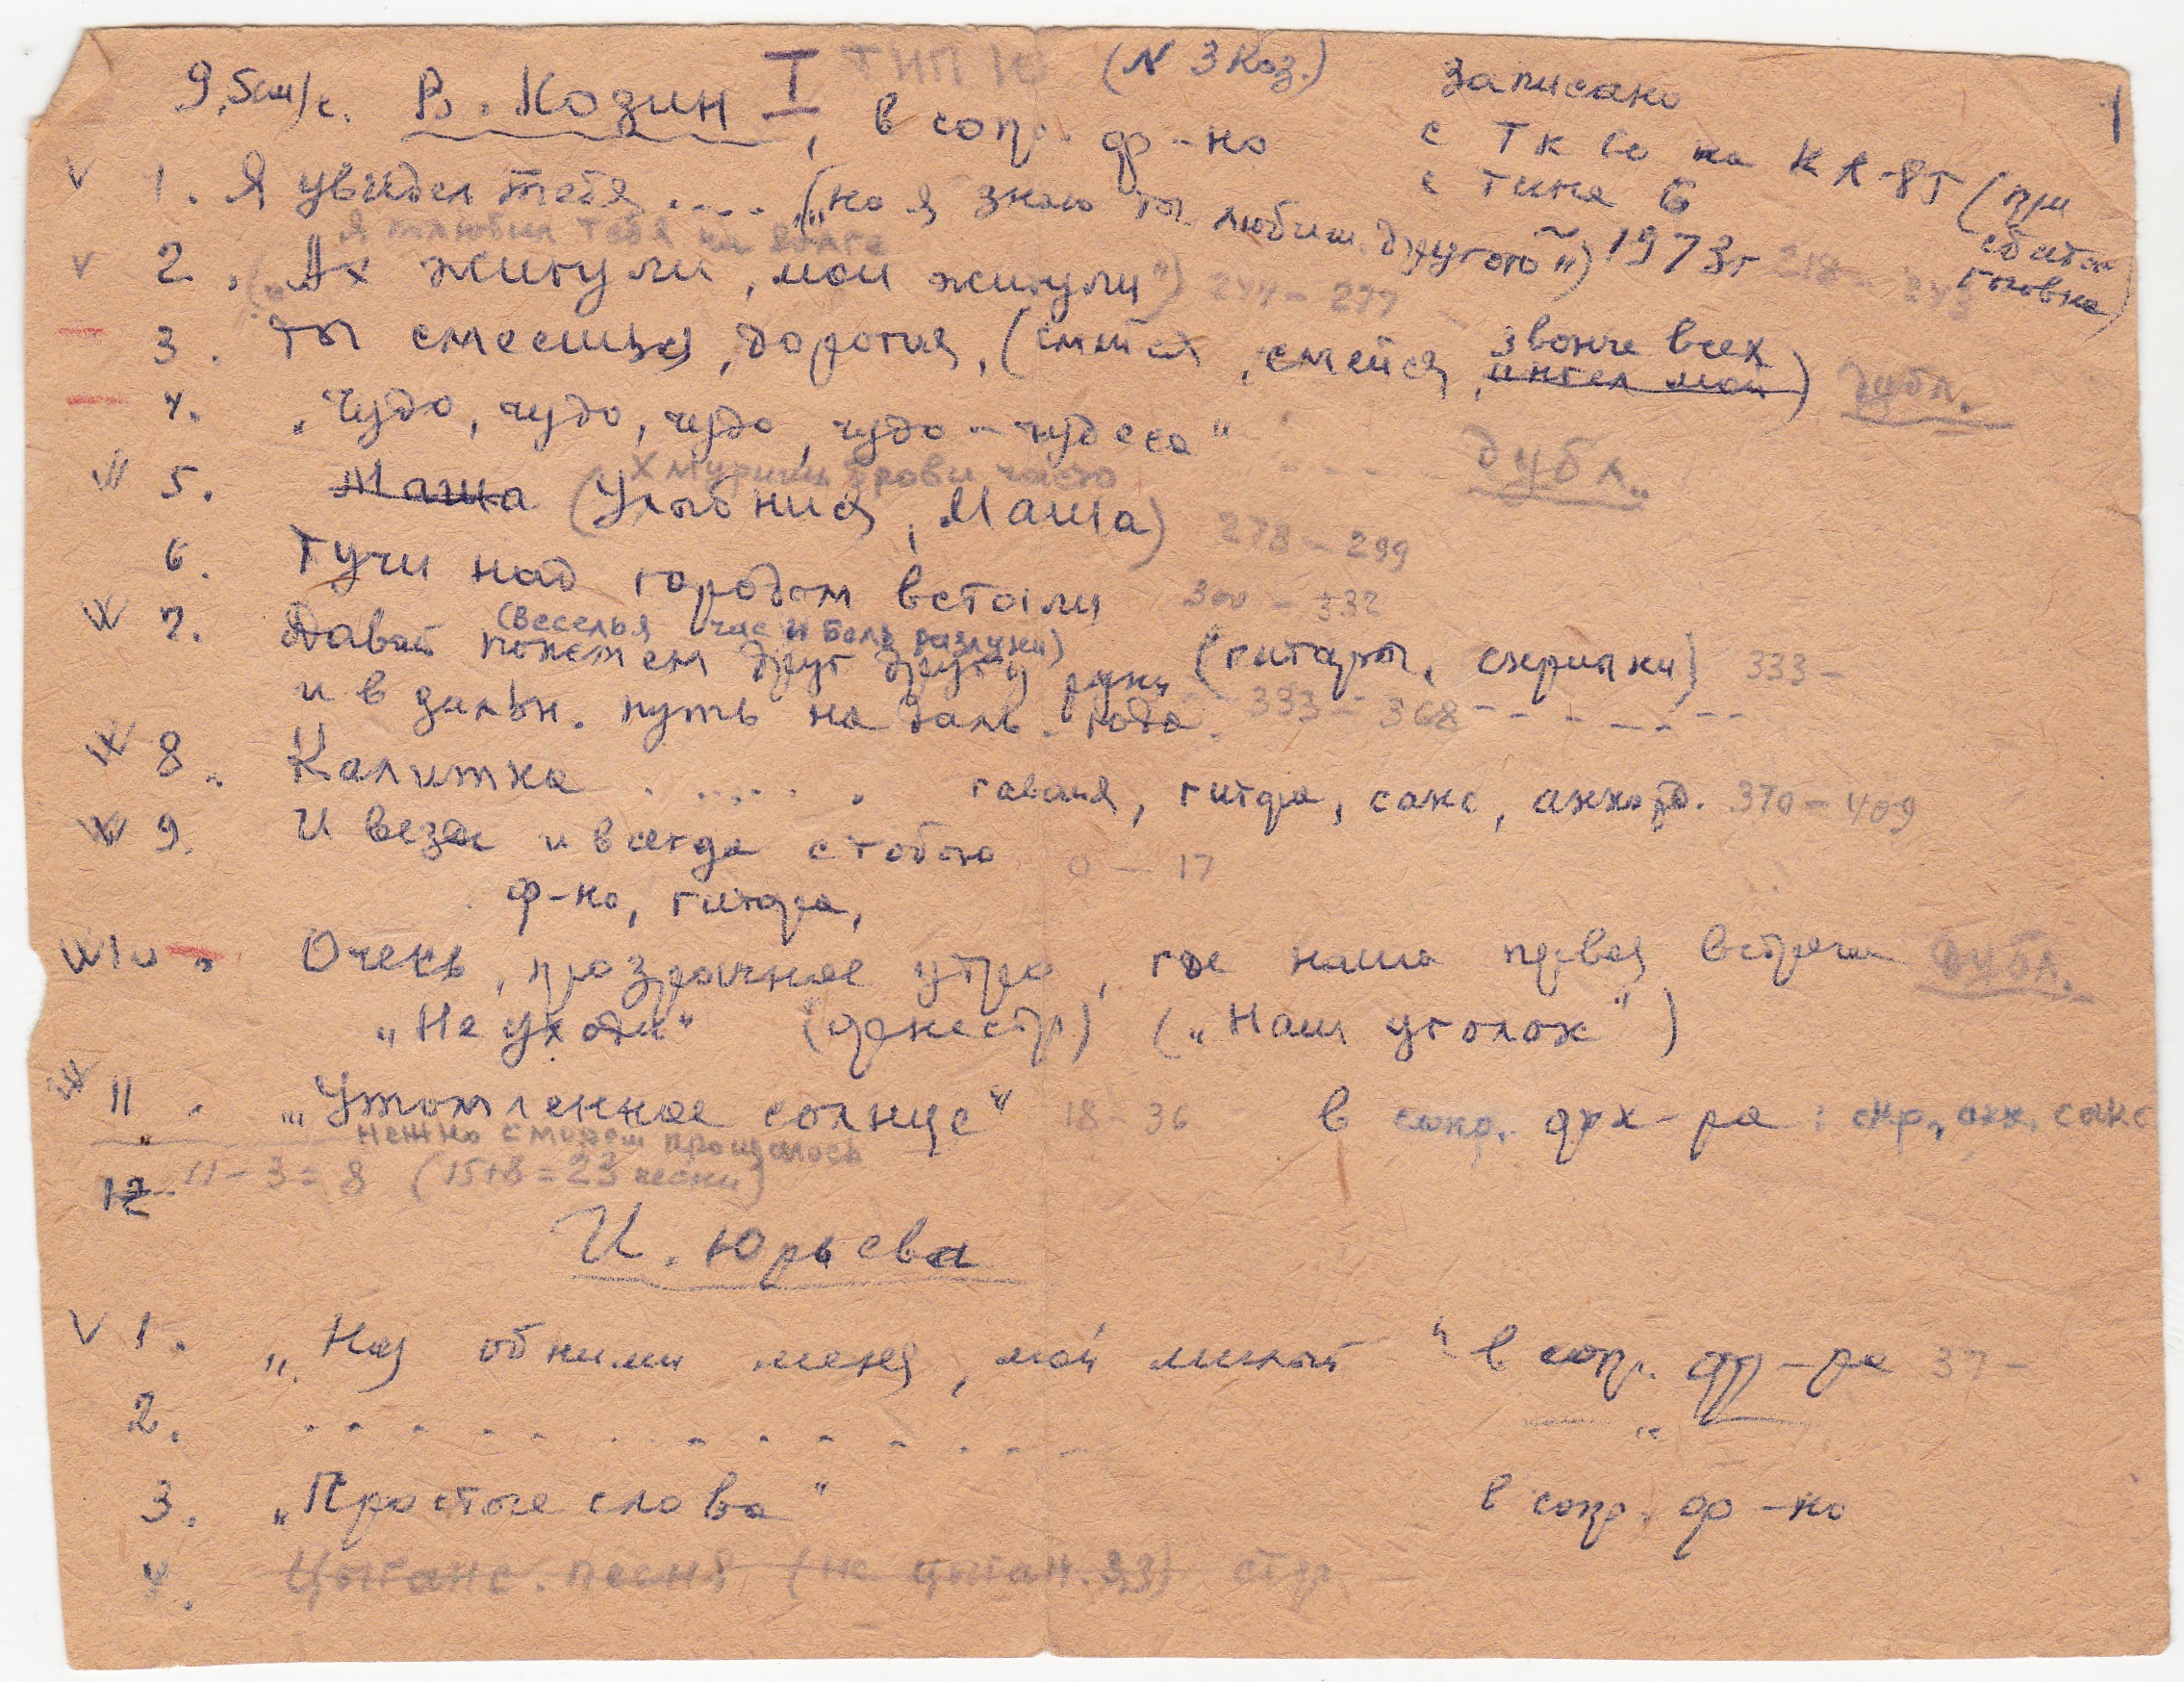 9,5см/с. В. Козин I, ТИП 10 (N 3 Коз.) Записано 1
в сопр. ф-но с ТК на КR-8Т (при сбитой головке)
с типа 6
1. Я увидел тебя .... („но я знаю ты любиш. другого") 1973г 218 - 243
Я полюбил тебя на Волге
2. („Ах жигули, мои жигули") 244 - 277
3. Ты смеешься, дорогая, (смейся, смейся, звонче всех ангел мой) дубл.
4. „Чудо, чудо, чудо, чудо - чудеса" - - - - дубл.
Хмуришь брови часто
5. Маша (Улыбнися, Маша) 278 - 299
6. Тучи над городом встали 300 - 332
(Веселья час и боль разлуки)
7. Давай пожмем друг другу руки (гитары, скрипки) 333 -
и в дальн. путь на даль. года. 333 - 368 - - - - - -
8. Калитка . . . . . . гавайя, гитара, сакс, аккорд. 370 - 409
9. И везде и всегда с тобою 0 - 17
ф-но, гитара,
10. Очень, прозрачное утро, где наша первая встреча дубл.
„Не уходи" (оркестр) („Наш уголок")
11. „Утомленное солнце" 18 - 36 в сопр. орк-ра: скр., акк. сакс
нежно с морем прощалось
12 11 - 3 = 8 (15+8 = 23 песни)
И. Юрьева
1. „Ну обними меня, мой милый" в сопр. орк-ра 37 -
2. - - - - - - - - - - - „
3. „Простые слова" в сопр. ф-но
4. Цыганс. песня (на цыган. яз) отр